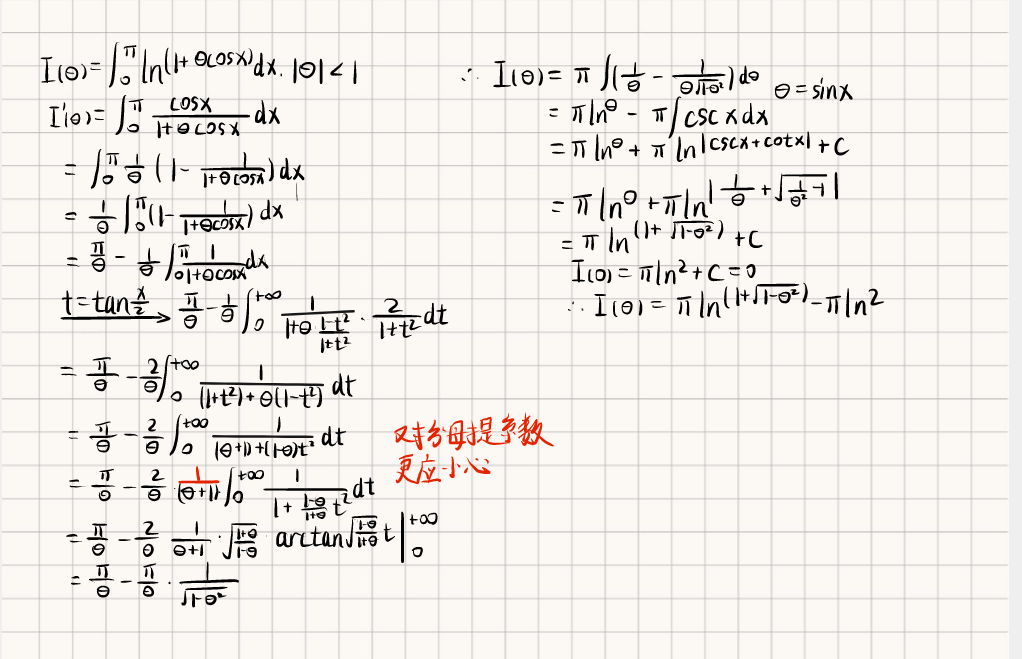 I(θ) = ∫₀^π ln(1+θcosx) dx. |θ|<1
I'(θ) = ∫₀^π cosx/(1+θcosx) dx
= ∫₀^π 1/θ (1 - 1/(1+θcosx)) dx
= 1/θ ∫₀^π (1 - 1/(1+θcosx)) dx
= π/θ - 1/θ ∫₀^π 1/(1+θcosx) dx
t=tan x/2 → π/θ - 1/θ ∫₀^{+∞} 1/(1+θ (1-t²)/(1+t²)) · 2/(1+t²) dt
= π/θ - 2/θ ∫₀^{+∞} 1/((1+t²)+θ(1-t²)) dt
= π/θ - 2/θ ∫₀^{+∞} 1/((θ+1)+(1-θ)t²) dt
= π/θ - 2/θ · 1/(θ+1) ∫₀^{+∞} 1/(1 + (1-θ)/(1+θ) t²) dt
= π/θ - 2/θ · 1/(θ+1) · √((1+θ)/(1-θ)) · arctan√((1-θ)/(1+θ)) t |₀^{+∞}
= π/θ - π/θ · 1/√(1-θ²)
对分母提系数
更应小心
∴ I(θ) = π ∫(1/θ - 1/(θ√(1-θ²))) dθ θ=sinx
= π lnθ - π∫cscxdx
= π lnθ + π ln|cscx+cotx| + C
= π lnθ + π ln|1/θ + √(1/θ² - 1)|
= π ln(1+√(1-θ²)) + C
I(0) = πln2 + C = 0
∴ I(θ) = π ln(1+√(1-θ²)) - π ln2